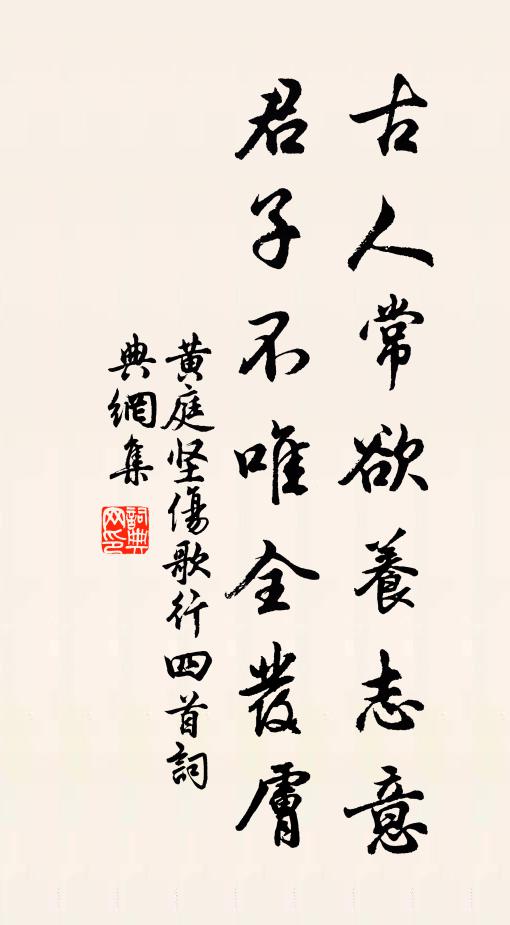 古人常欲養志意
君子不唯全發膚
黄庭坚傷歌行四首詞
典網集
詞典
网印